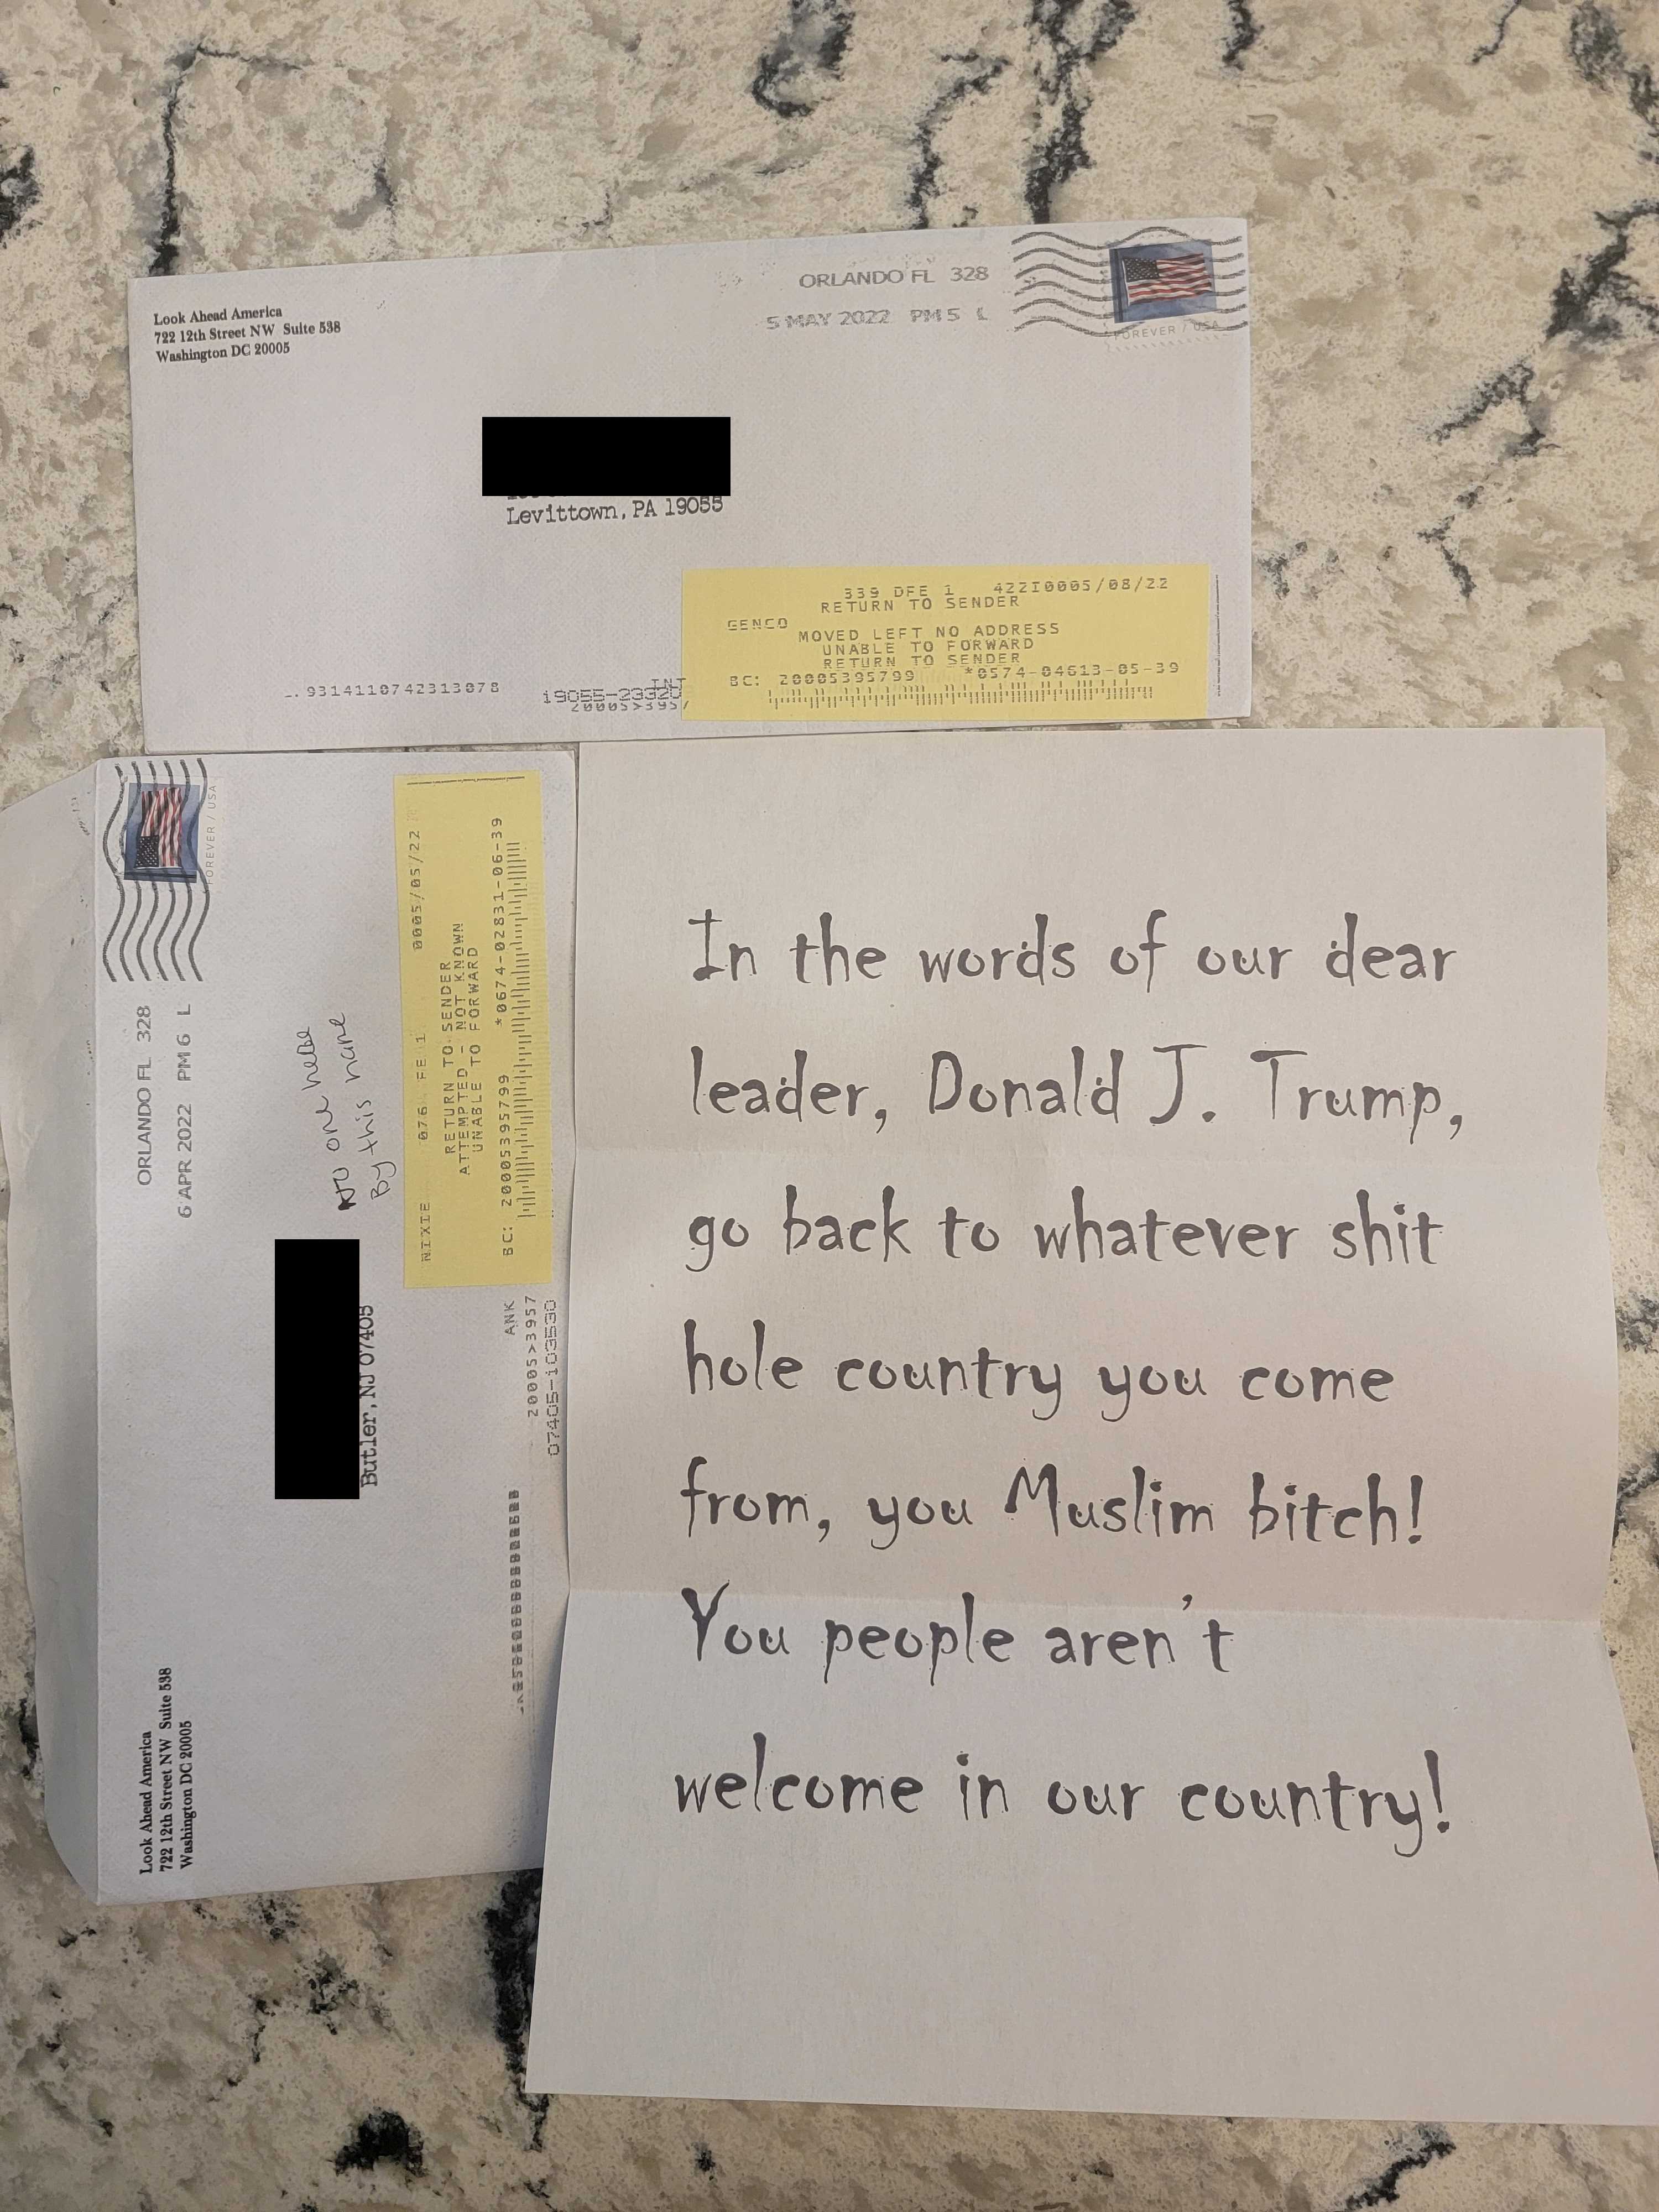 Look Ahead America
722 12th Street NW Suite 538
Washington DC 20005
ORLANDO FL 328
5 MAY 2022 PM 5 L
FOREVER / USA
Levittown, PA 19055
339 DFE 1 422I0005/08/22
RETURN TO SENDER
GENCO
MOVED LEFT NO ADDRESS
UNABLE TO FORWARD
RETURN TO SENDER
BC: 20005395799 *0574-04613-05-39
9314110742313078
INT
Look Ahead America
722 12th Street NW Suite 538
Washington DC 20005
ORLANDO FL 328
6 APR 2022 PM 6 L
FOREVER / USA
No one here
By this name
Butler, NJ 07405
NIXIE 076 FE 1 0005/05/22
RETURN TO SENDER
ATTEMPTED - NOT KNOWN
UNABLE TO FORWARD
BC: 20005395799 *0674-02831-06-39
ANK
20005>3957
07405-103530
In the words of our dear
leader, Donald J. Trump,
go back to whatever shit
hole country you come
from, you Muslim bitch!
You people aren't
welcome in our country!